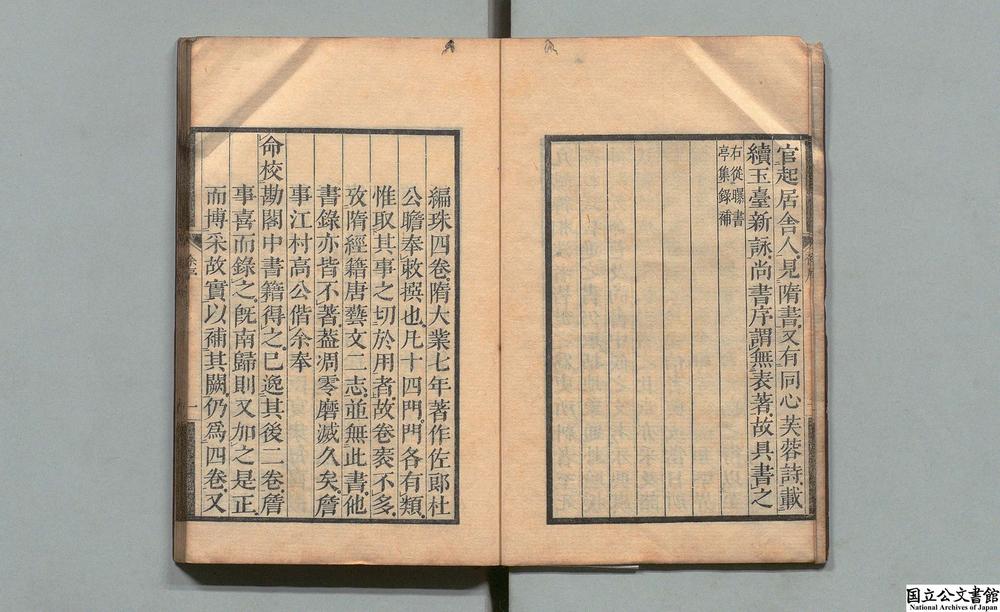 官起居舍人見隋書又有同心芙蓉詩載
續玉臺新詠尚書序謂無表著故具書之
右從曝書
亭集録補
編珠四卷隋大業七年著作佐郎杜
公瞻奉敕撰也凡十四門門各有類
惟取其事之切於用者故卷袠不多
攷隋經籍唐藝文二志並無此書他
書錄亦皆不著葢凋零磨滅久矣詹
事江村高公偕余奉
命校勘閣中書籍得之已逸其後二卷詹
事喜而錄之旣南歸則又加之是正
而博采故實以補其闕仍爲四卷又
余序
一
国立公文書館
National Archives of Japan